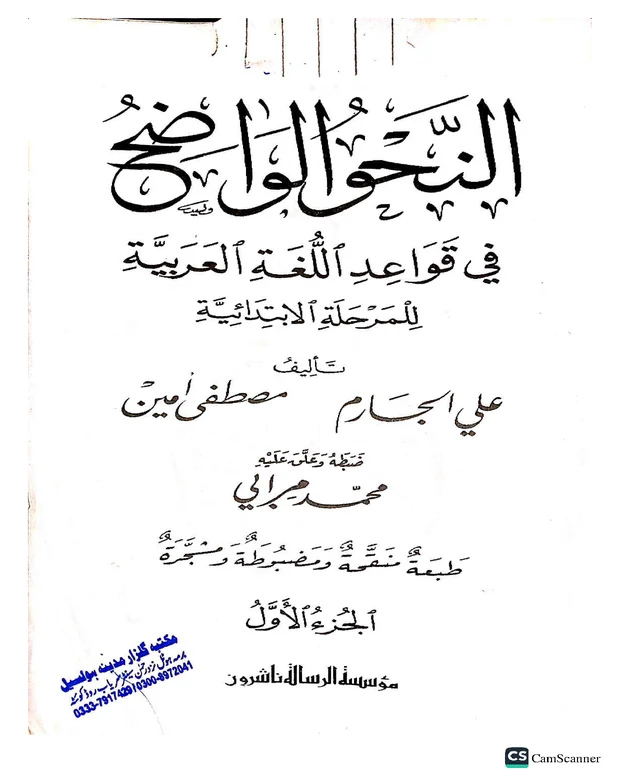 النَّحْوُ الْوَاضِحُ
فِي قَوَاعِدِ اللُّغَةِ الْعَرَبِيَّةِ
لِلْمَرْحَلَةِ الِابْتِدَائِيَّةِ
تَأليفُ
علي الجارم مصطفى أمين
ضَبَطَهُ وَعَلَّقَ عَلَيْهِ
محمّد مرابي
طَبْعَةٌ مُنَقَّحَةٌ وَمَضْبُوطَةٌ وَمُشَجَّرَةٌ
الْجُزْءُ الْأَوَّلُ
مؤسسة الرسالة ناشرون
مکتبہ گلزار مدینہ ہولسیل
0333-7917429/0300-8972041
CS CamScanner